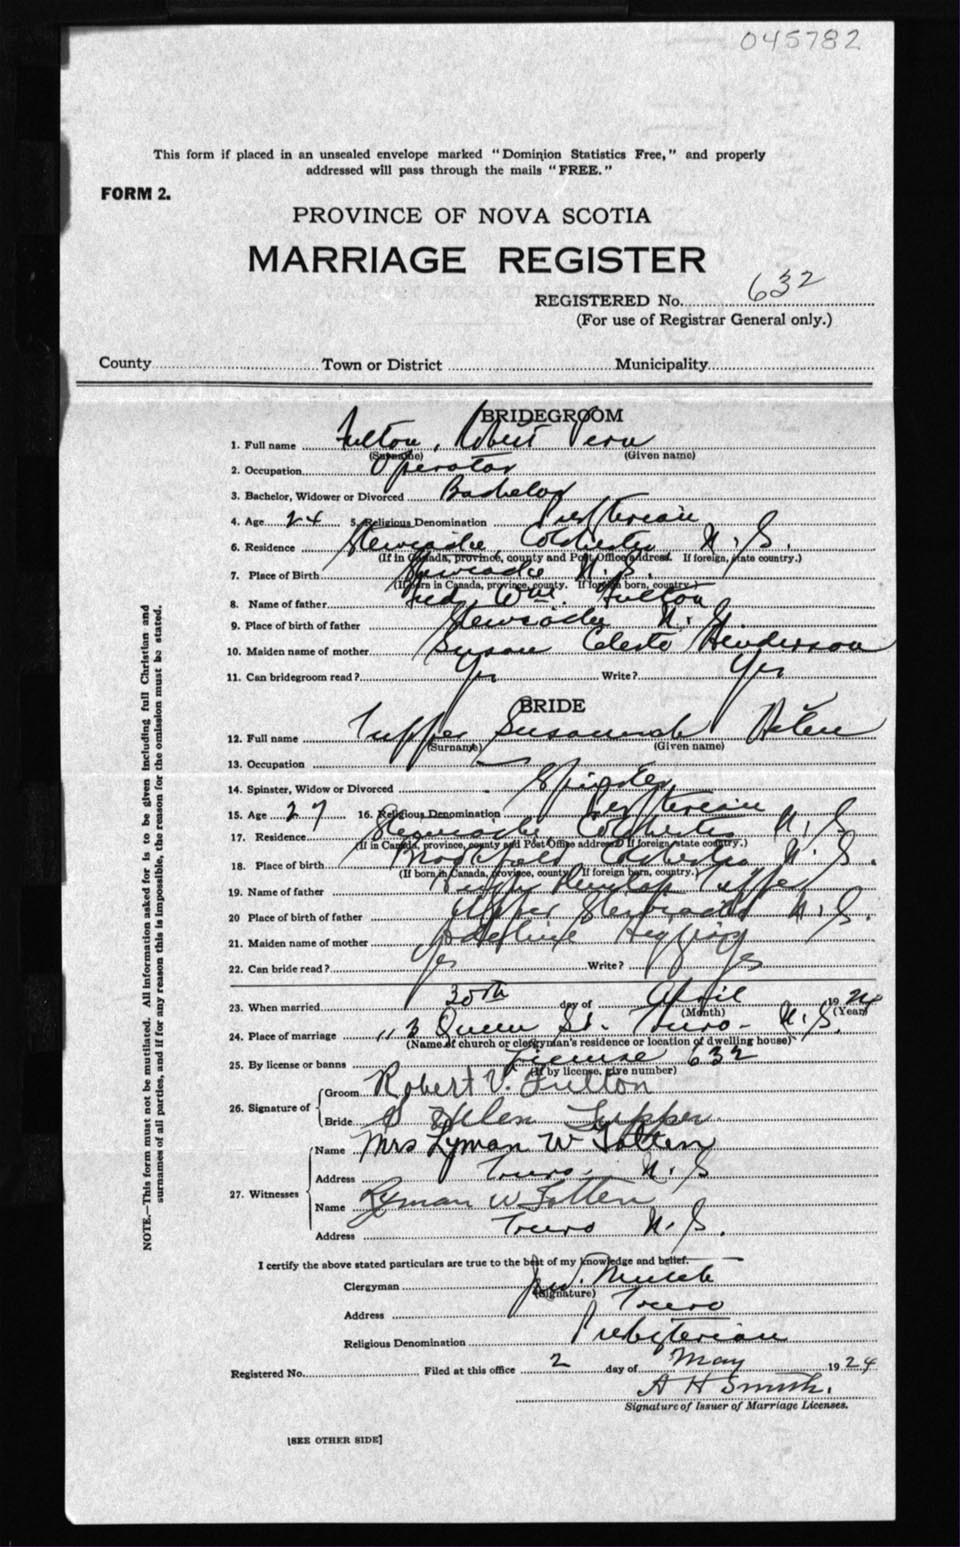 045782
This form if placed in an unsealed envelope marked "Dominion Statistics Free," and properly
addressed will pass through the mails "FREE."
FORM 2.
PROVINCE OF NOVA SCOTIA
MARRIAGE REGISTER
REGISTERED No. 632
(For use of Registrar General only.)
County Town or District Municipality
BRIDEGROOM
1. Full name Fulton, Robert
(Surname) (Given name)
2. Occupation Operator
3. Bachelor, Widower or Divorced Bachelor
4. Age 24 5. Religious Denomination
6. Residence Stewiacke, Colchester N.S.
(If in Canada, province, county and Post Office address. If foreign, state country.)
7. Place of Birth Stewiacke N.S.
(If born in Canada, province, county. If foreign born, country.)
8. Name of father Wm. Fulton
9. Place of birth of father Stewiacke N.S.
10. Maiden name of mother Susan Celeste Henderson
11. Can bridegroom read? Yes Write? Yes
BRIDE
12. Full name Tupper Susannah Helen
(Surname) (Given name)
13. Occupation
14. Spinster, Widow or Divorced Spinster
15. Age 27 16. Religious Denomination
17. Residence Stewiacke, Colchester N.S.
(If in Canada, province, county and Post Office address. If foreign, state country.)
18. Place of birth Brookfield Colchester N.S.
(If born in Canada, province, county. If foreign born, country.)
19. Name of father Tupper
20 Place of birth of father Upper Stewiacke N.S.
21. Maiden name of mother Adeline
22. Can bride read? Yes Write? Yes
23. When married 30th day of April 1924
(Month) (Year)
24. Place of marriage Queen St. Truro - N.S.
(Name of church or clergyman's residence or location of dwelling house)
25. By license or banns License 632
(If by license, give number)
26. Signature of
Groom Robert V. Fulton
Bride S Helen Tupper
27. Witnesses
Name Mrs Lyman W Totten
Address Truro, N.S
Name Lyman W Totten
Address Truro N.S.
I certify the above stated particulars are true to the best of my knowledge and belief.
Clergyman
(Signature)
Address Truro
Religious Denomination Presbyterian
Registered No. Filed at this office 2 day of May 1924
A H Smith.
Signature of Issuer of Marriage Licenses.
[SEE OTHER SIDE]
NOTE.—This form must not be mutilated. All information asked for is to be given including full Christian and
surnames of all parties, and if for any reason this is impossible, the reason for the omission must be stated.